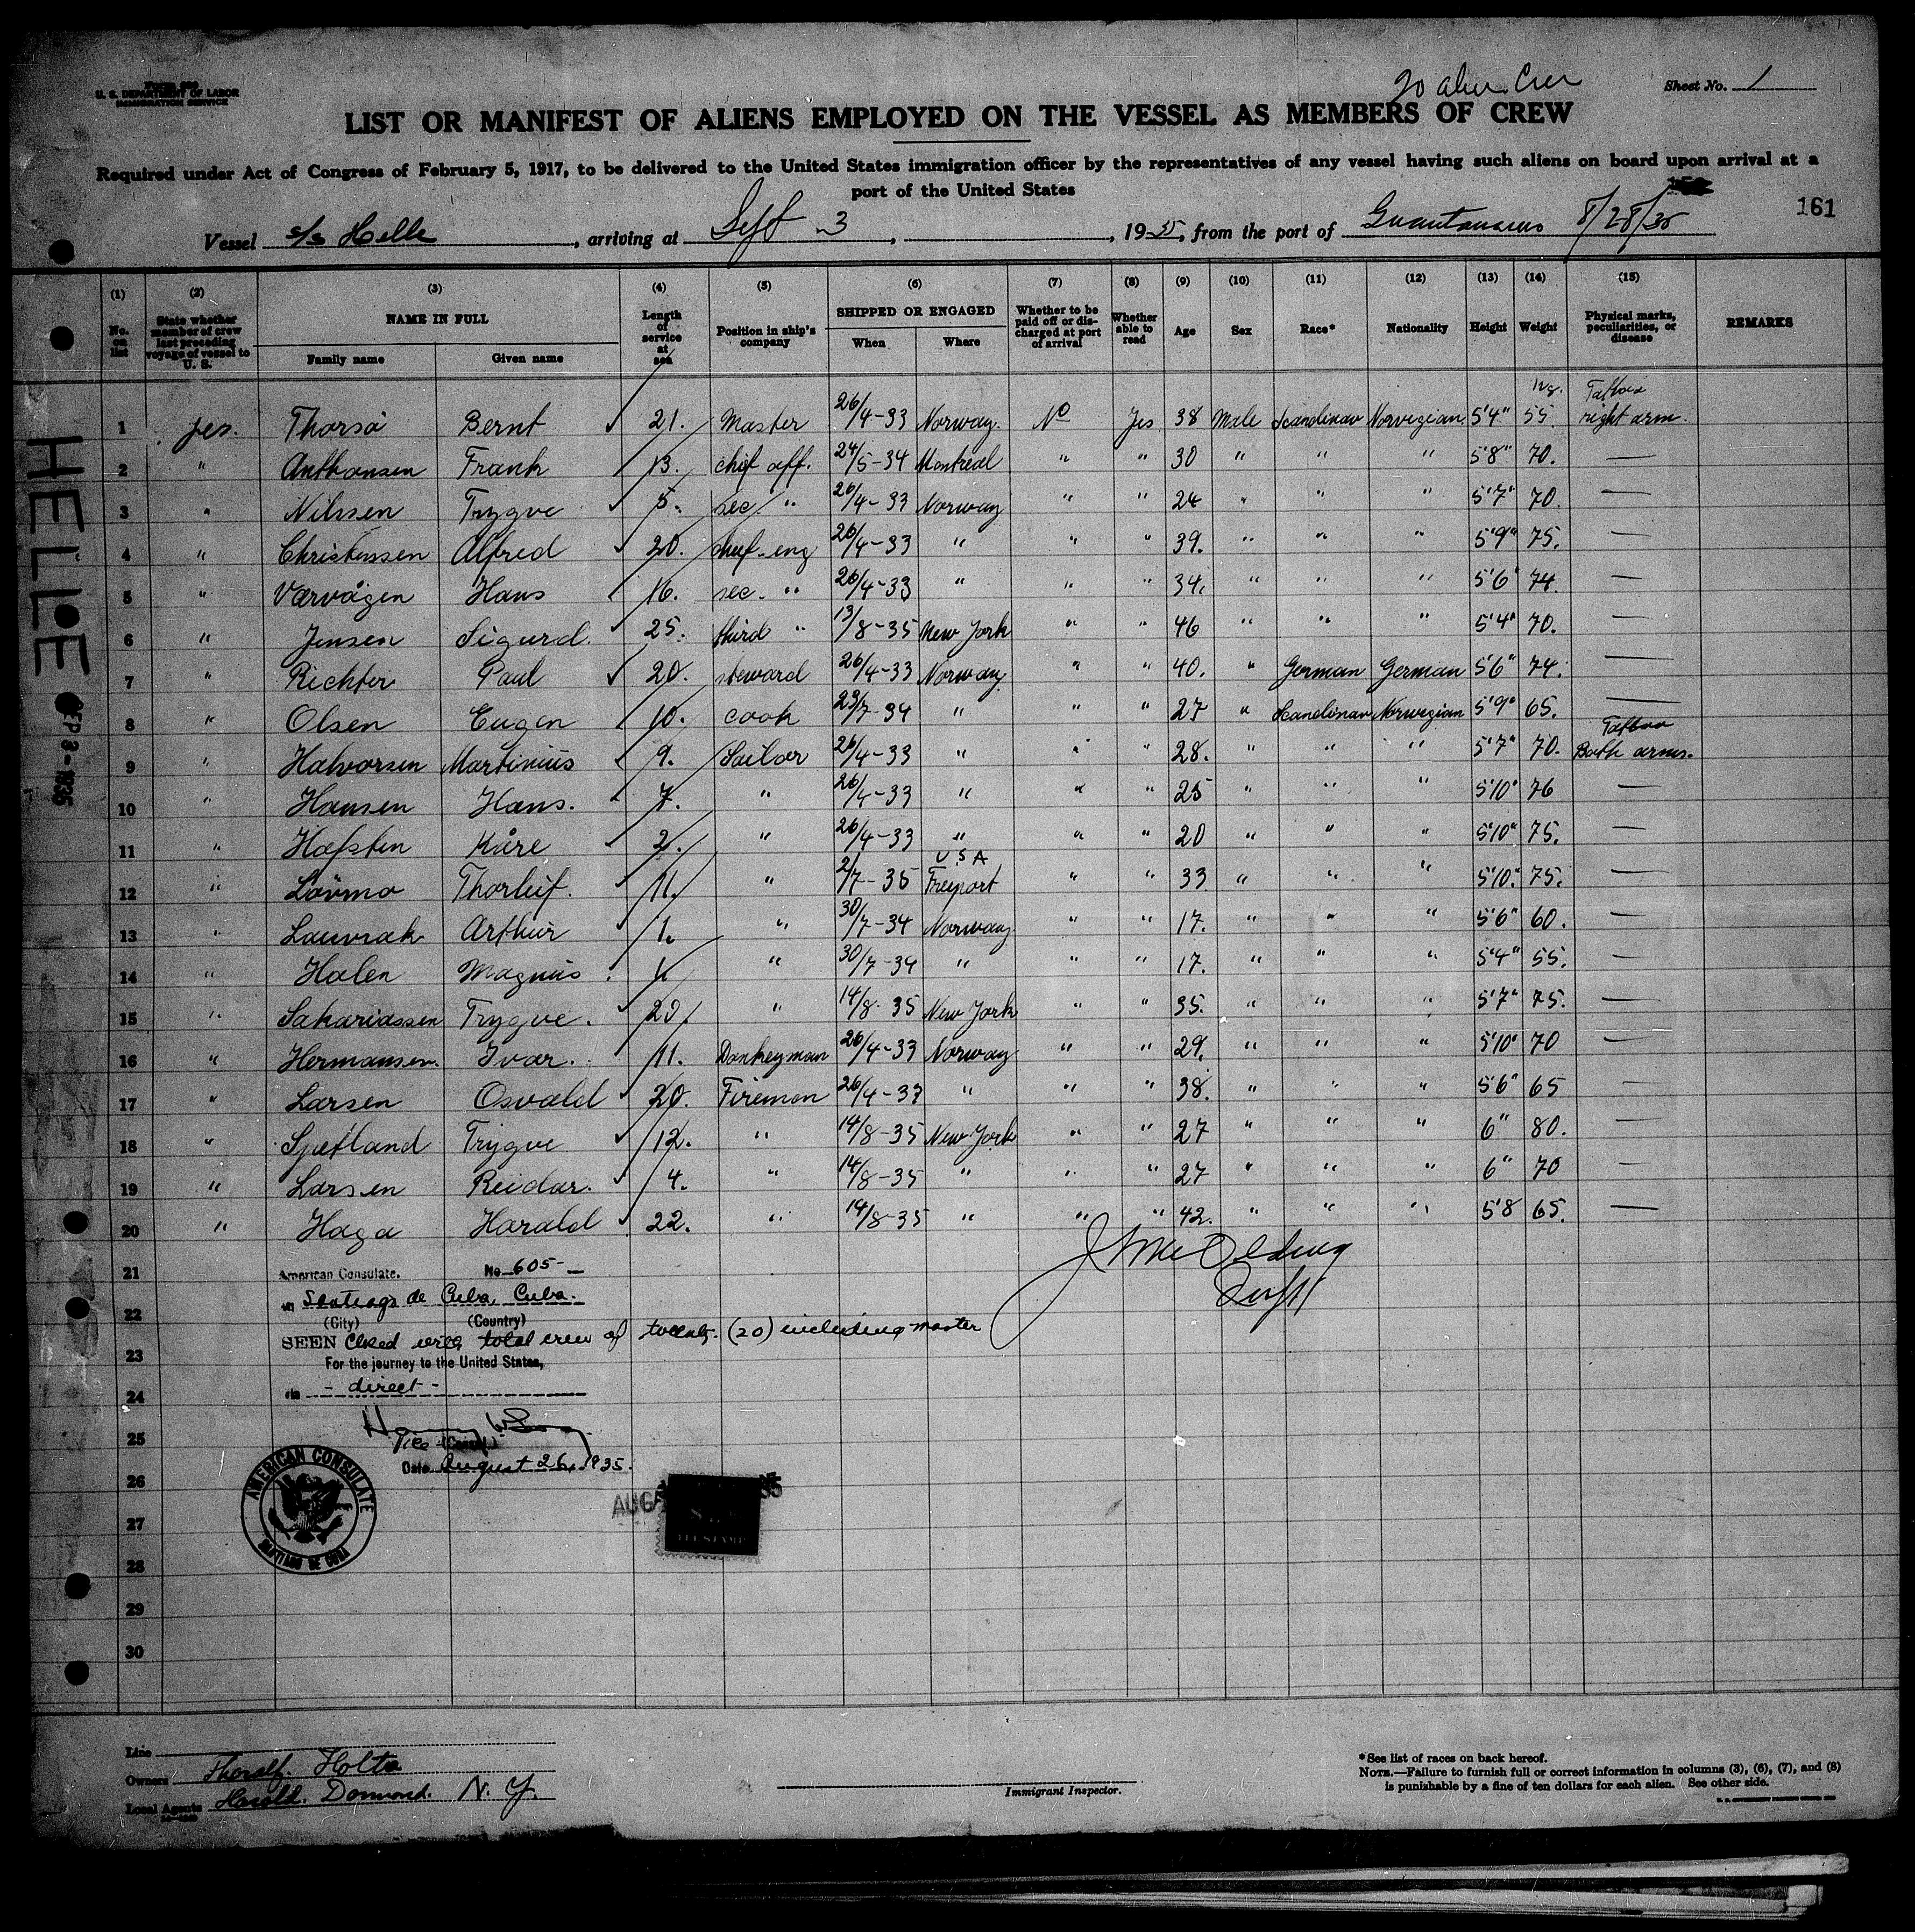 20 alien Crew
Form 680
U. S. DEPARTMENT OF LABOR
IMMIGRATION SERVICE
Sheet No. 1
LIST OR MANIFEST OF ALIENS EMPLOYED ON THE VESSEL AS MEMBERS OF CREW
Required under Act of Congress of February 5, 1917, to be delivered to the United States immigration officer by the representatives of any vessel having such aliens on board upon arrival at a
port of the United States
161
Vessel s/s Helle, arriving at Sept 3, 1935, from the port of Guantanamo 8/28/35
(1) (2) (3) (4) (5) (6) (7) (8) (9) (10) (11) (12) (13) (14) (15)
No. on list State whether member of crew last preceding voyage of vessel to U. S. NAME IN FULL Family name Given name Length of service at sea Position in ship's company SHIPPED OR ENGAGED When Where Whether to be paid off or discharged at port of arrival Whether able to read Age Sex Race* Nationality Height Weight Physical marks, peculiarities, or disease REMARKS
1 yes. Thorsö Bernt 21. Master 26/4-33 Norway. No Yes 38 Male Scandinav Norvegian 5'4" kg. 55. Tattoo right arm.
2 " Anthonsen Frank 13. chif off. 24/5-34 Montreal " " 30 " " " 5'8" 70. —
3 " Nilssen Trygve 5. sec. " 26/4-33 Norway " " 24 " " " 5'7" 70. —
4 " Christenssen Alfred 20. chief-eng 26/4-33 " " " 39. " " " 5'9" 75. —
5 " Værvågen Hans 16. sec. " 26/4-33 " " " 34. " " " 5'6" 74. —
6 " Jensen Sigurd. 25. third " 13/8-35 New York " " 46 " " " 5'4" 70. —
7 " Richter Paul 20. steward 26/4-33 Norway " " 40. " German German 5'6" 74. —
8 " Olsen Eugen 10. cook 23/7-34 " " " 27 " Scandinav Norwegian 5'9" 65. —
9 " Halvorsen Martinius 9. Sailor 26/4-33 " " " 28. " " " 5'7" 70. Tattoo Both arms.
10 " Hansen Hans. 7. " 26/4-33 " " " 25 " " " 5'10" 76 —
11 " Hafsten Kåre 2. " 26/4-33 " " " 20 " " " 5'10" 75. —
12 " Lövmo Thorleif. 11. " 2/7-35 USA Freeport " " 33 " " " 5'10" 75. —
13 " Lauvrak Arthur 1. " 30/7-34 Norway " " 17. " " " 5'6" 60. —
14 " Holen Magnus 1. " 30/7-34 " " " 17. " " " 5'4" 55. —
15 " Sakariassen Trygve. 20. " 14/8-35 New York " " 35. " " " 5'7" 75. —
16 " Hermansen. Ivar. 11. Donkeyman 26/4-33 Norway " " 29. " " " 5'10" 70 —
17 " Larsen Osvald 20. Firemon 26/4-33 " " " 38. " " " 5'6" 65 —
18 " Sjøtland Trygve 12. " 14/8-35 New York " " 27 " " " 6" 80. —
19 " Larsen Reidar. 4. " 14/8-35 " " " 27 " " " 6" 70 —
20 " Haga Harald 22. " 14/8-35 " " " 42. " " " 5'8 65. —
21
22
23
24
25
26
27
28
29
30
American Consulate. No. 605-
at Santiago de Cuba, Cuba.
(City) (Country)
SEEN Closed with total crew of twenty (20) including master
For the journey to the United States,
via - direct -
Vice Consul
Date August 26, 1935.
AMERICAN CONSULATE
SANTIAGO DE CUBA
AUG
FEE STAMP
HELLE
SEP 3-1935
Line
Owners Thoralf. Holta
Local Agents Harold. Dormond. N. Y.
Immigrant Inspector.
*See list of races on back hereof.
NOTE.—Failure to furnish full or correct information in columns (3), (6), (7), and (8)
is punishable by a fine of ten dollars for each alien. See other side.